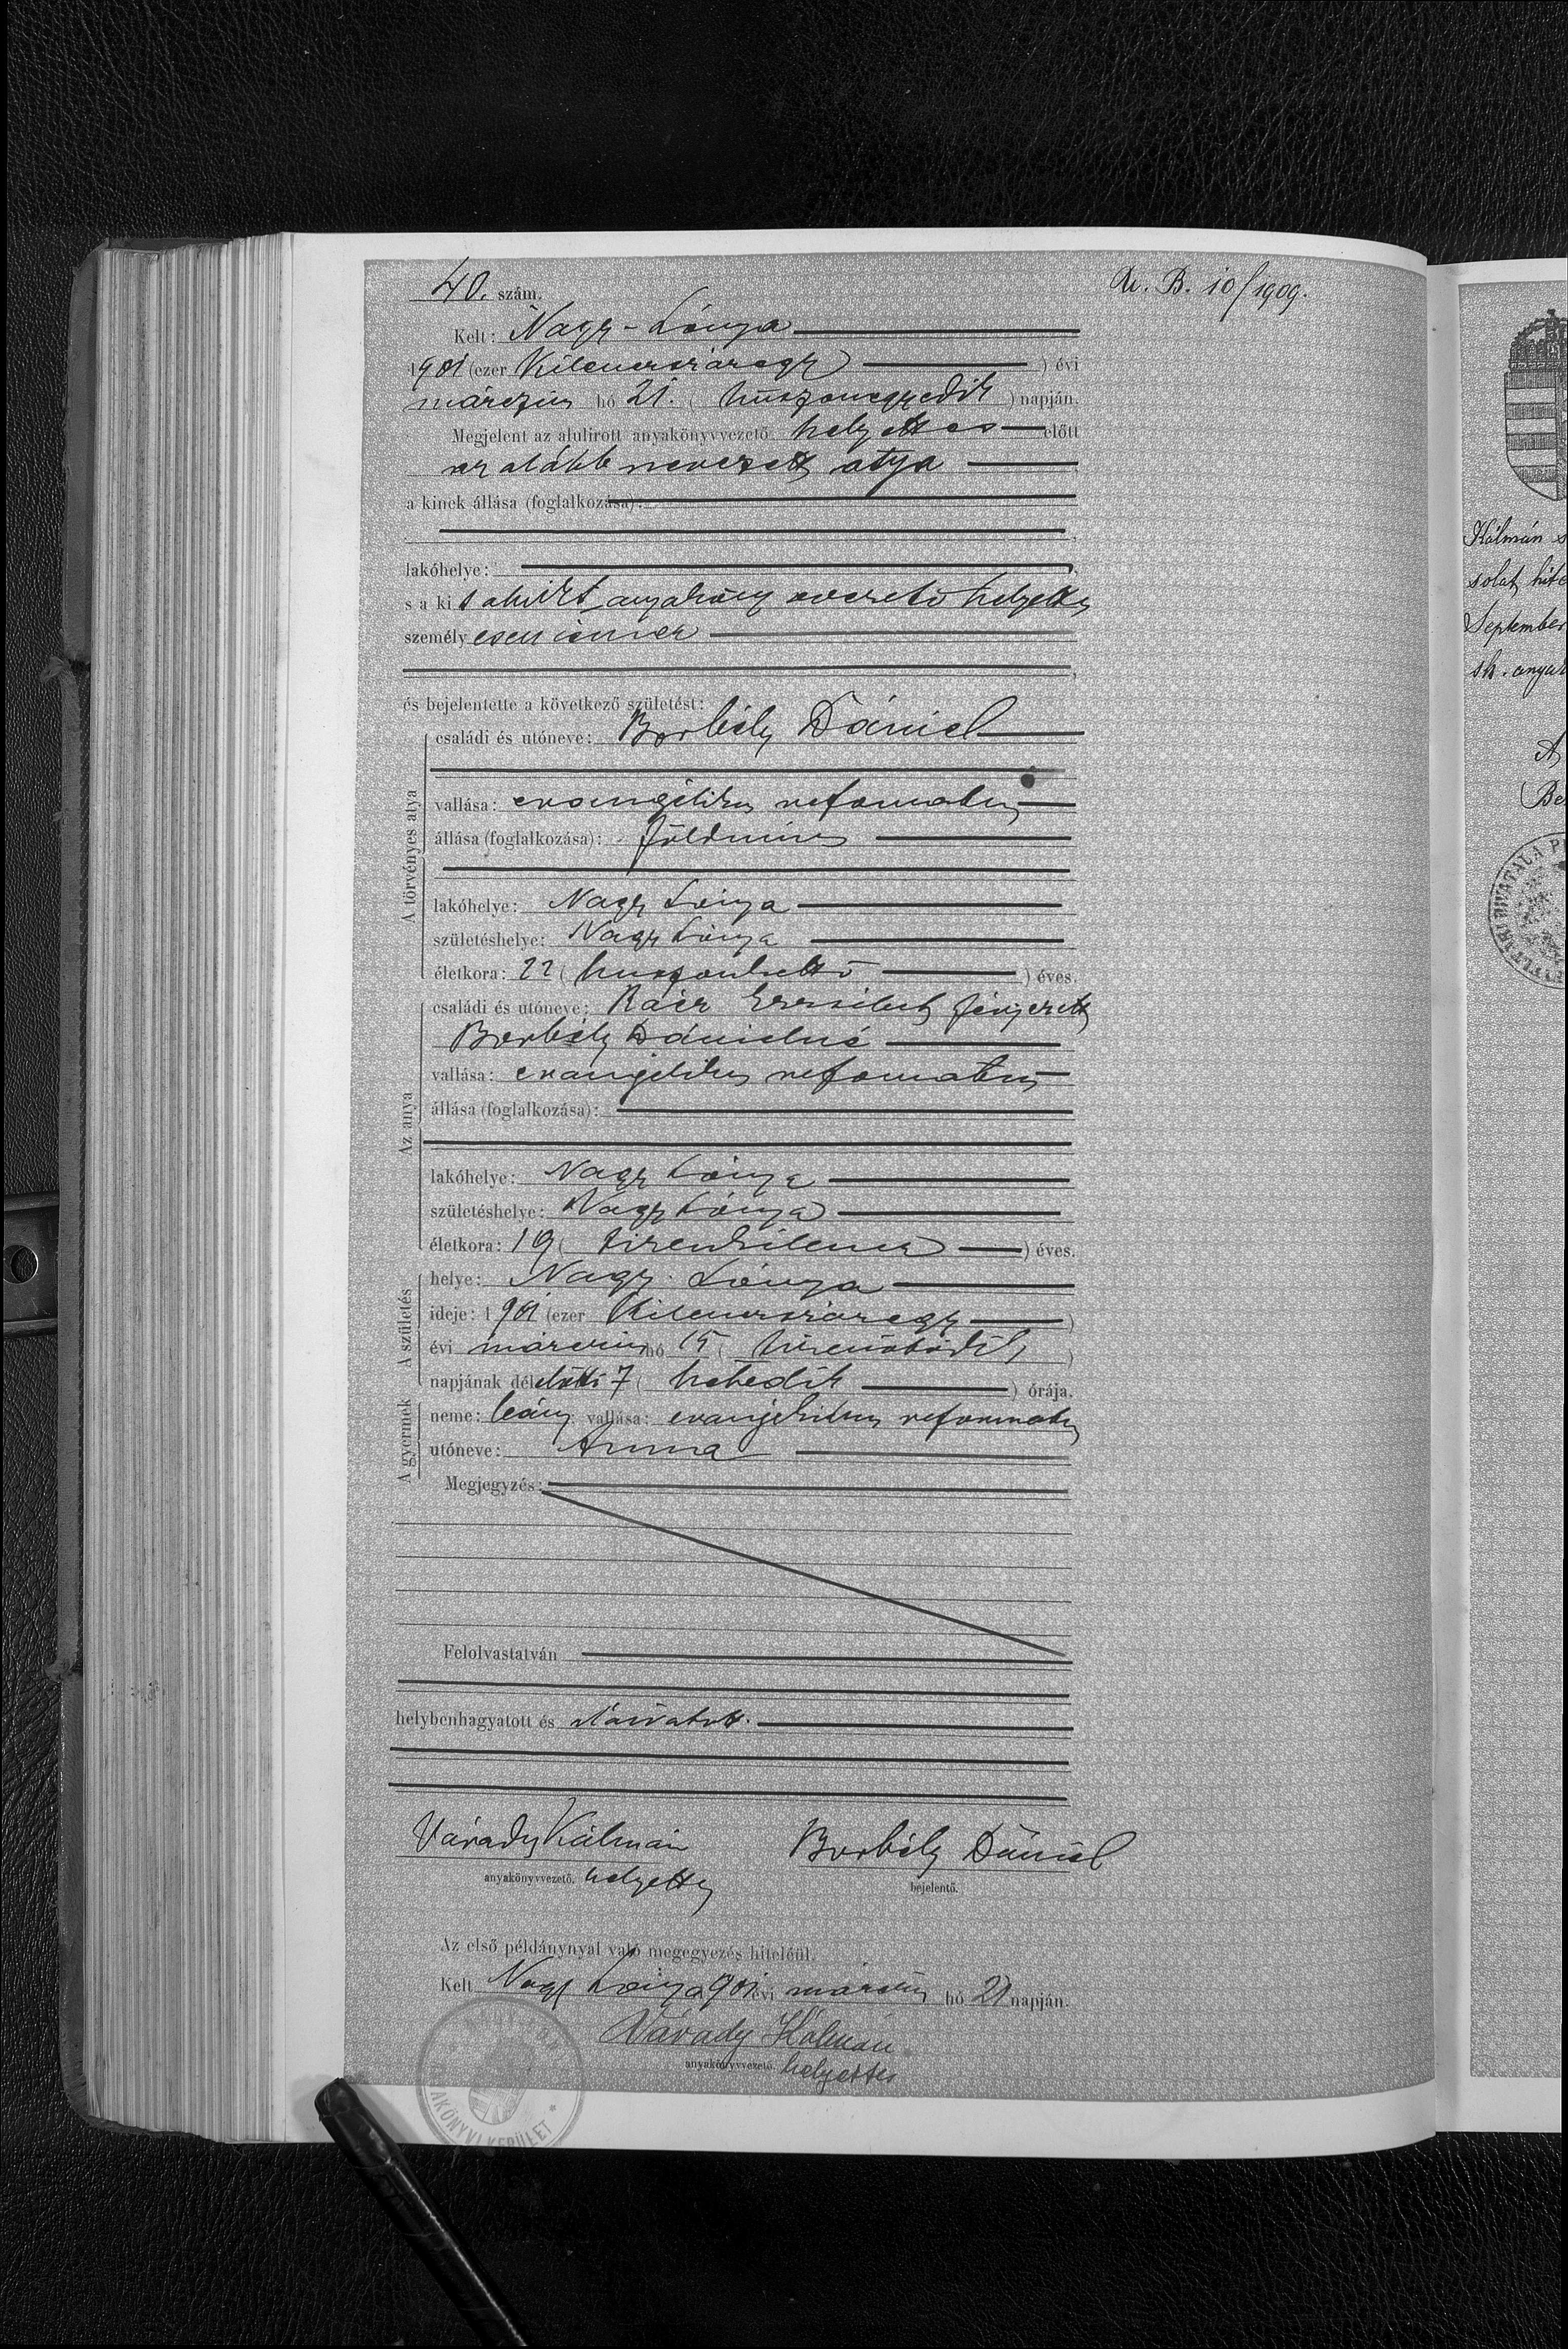 40. szám.
B. 10/1909.
Kelt: Nagy-Lónya
1901 (ezer Kilencszázegy) évi
márczius hó 21. (huszonegyedik) napján.
Megjelent az alulirott anyakönyvvezető helyettes előtt
az alább nevezett atya
a kinek állása (foglalkozása):
lakóhelye:
s a kit alulirt anyakönyvvezető helyettes
személyesen ismer
és bejelentette a következő születést:
A törvényes atya
családi és utóneve: Borbély Dániel
vallása: evangélikus reformatus
állása (foglalkozása): földmives
lakóhelye: Nagy Lónya
születéshelye: Nagy Lónya
életkora: 22 (huszonkettő) éves.
Az anya
családi és utóneve: Rácz Erzsébet férjezett
Borbély Dánielné
vallása: evangelikus reformatus
állása (foglalkozása):
lakóhelye: Nagy Lónya
születéshelye: Nagy Lónya
életkora: 19 (tizenkilencz) éves.
A születés
helye: Nagy-Lónya
ideje: 1901 (ezer Kilencszázegy)
évi márczius hó 15 (tizenötödik)
napjának délelőtti 7 (hetedik) órája.
A gyermek
neme: leány vallása: evangelikus reformatus
utóneve: Anna
Megjegyzés:
Felolvastatván
helybenhagyatott és aláiratott.
Várady Kálmán Borbély Dániel
anyakönyvvezető. helyettes bejelentő.
Az első példánynyal való megegyezés hiteléül.
Kelt Nagy Lónya 901 évi márczius hó 21 napján.
Várady Kálmán
anyakönyvvezető. helyettes
ANYAKÖNYVI KERÜLET
Kálmán
September